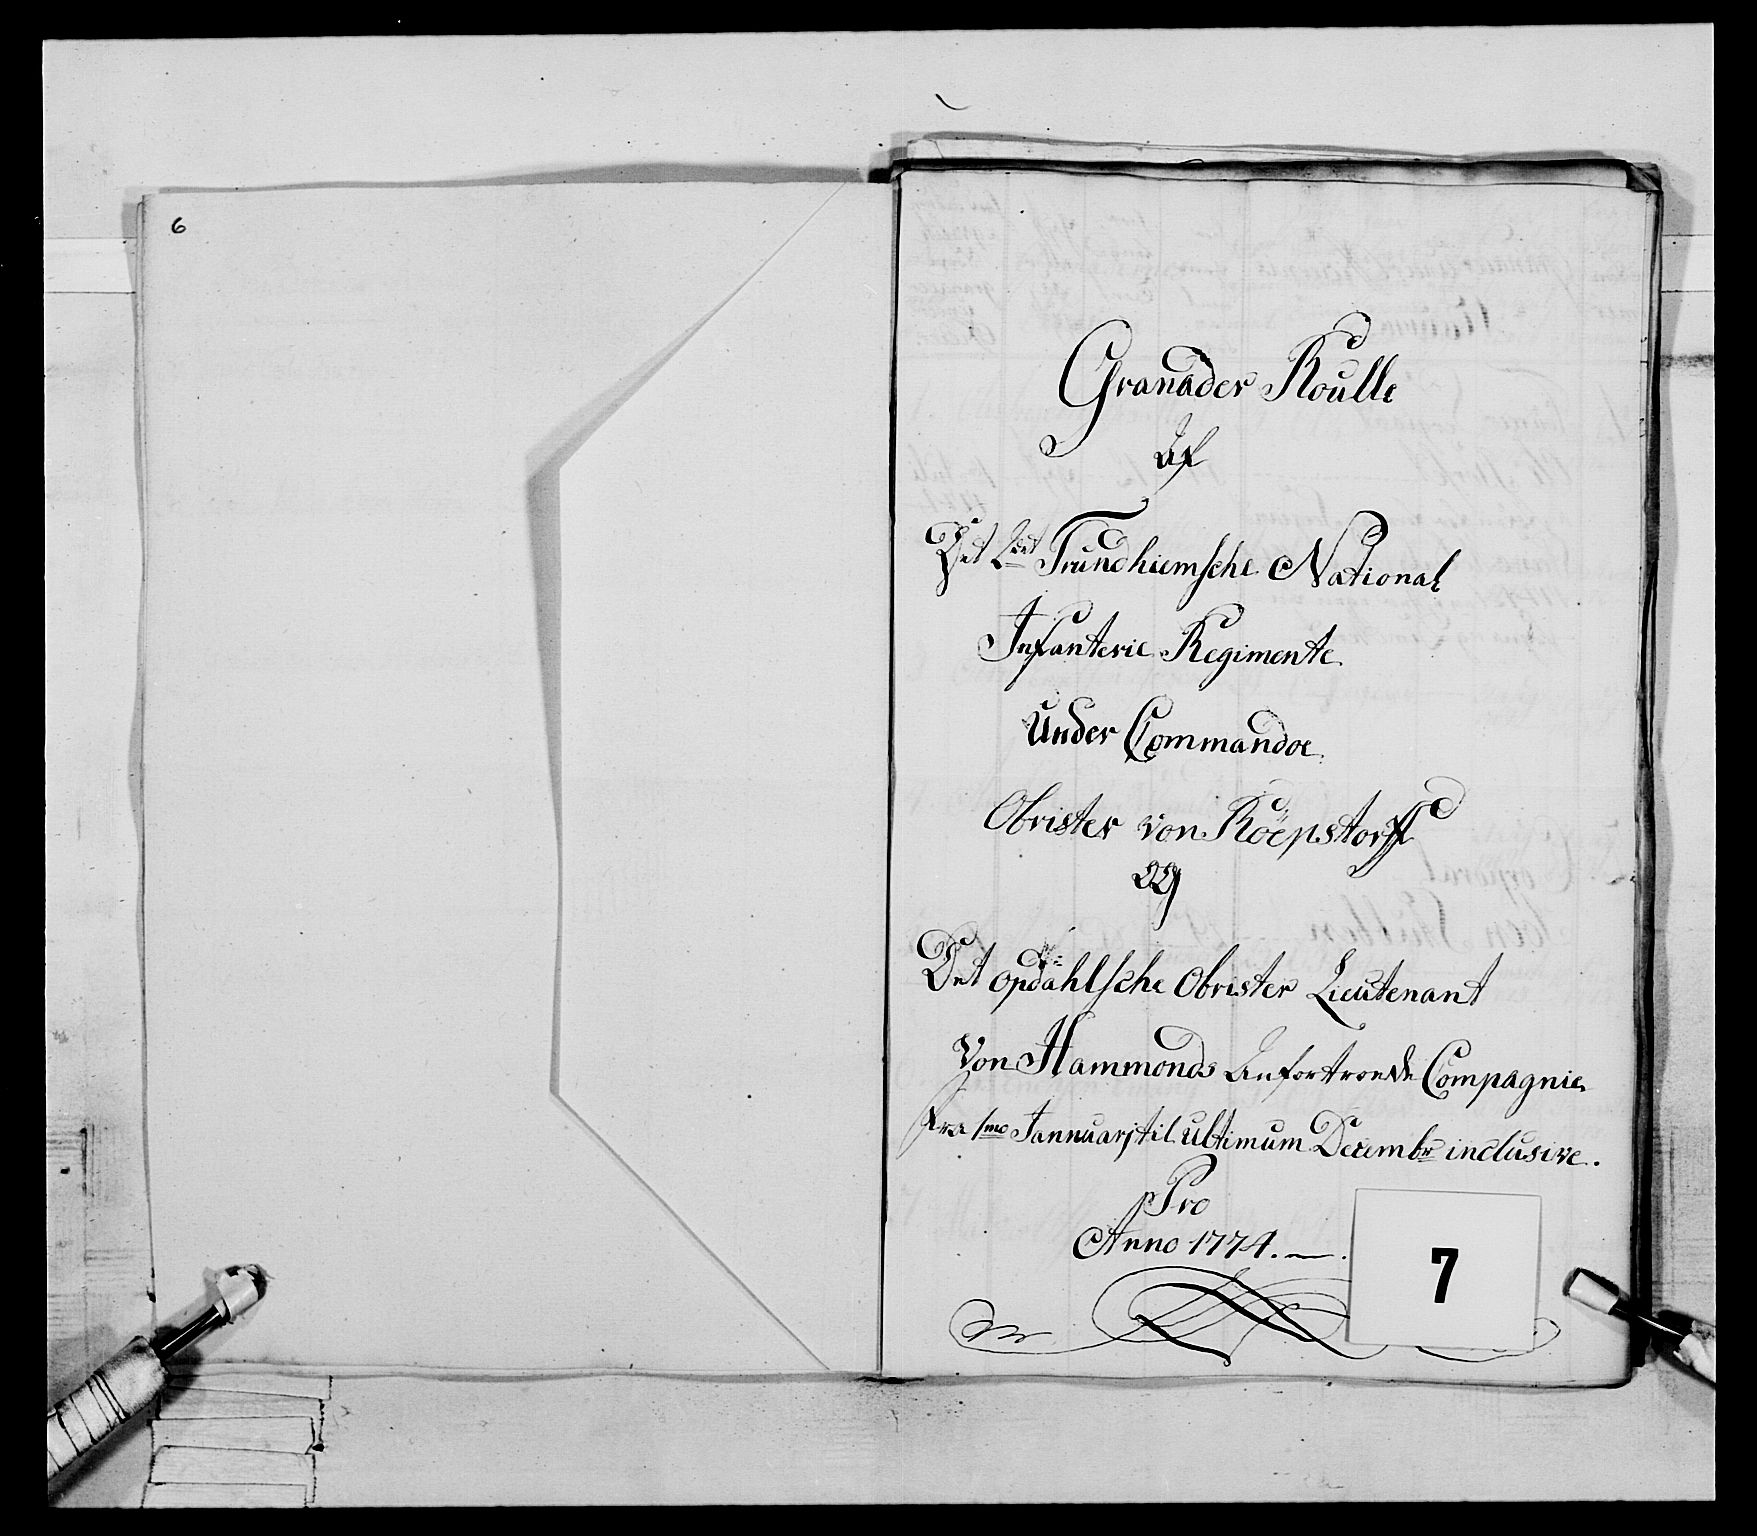 6
Granader Roulle
Af
Det 2det Trundhiemsche National
Infanterie Regimente
Under Commando
Obrister von Röepstorff
og
Det opdahlsche Obrister Lieutenant
Von Hammonds Anfortroede Compagnie
fra 1mo Januarj til ultimum Decembr inclusive.
Pro
Anno 1774. —.
7